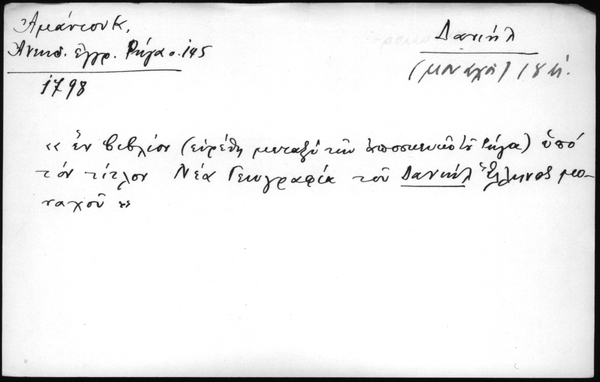 Ἀμάντου Κ,
Ἀνεκδ. ἔγγρ. Ρήγα σ. 145
1798
Δανιήλ
(μοναχός) 18 αἰ.
« ἓν βιβλίον (εὑρέθη μεταξὺ τῶν ἀποσκευῶν τοῦ Ρήγα) ὑπό
τόν τίτλον Νέα Γεωγραφία τοῦ Δανιήλ Ἕλληνος μο-
ναχοῦ »